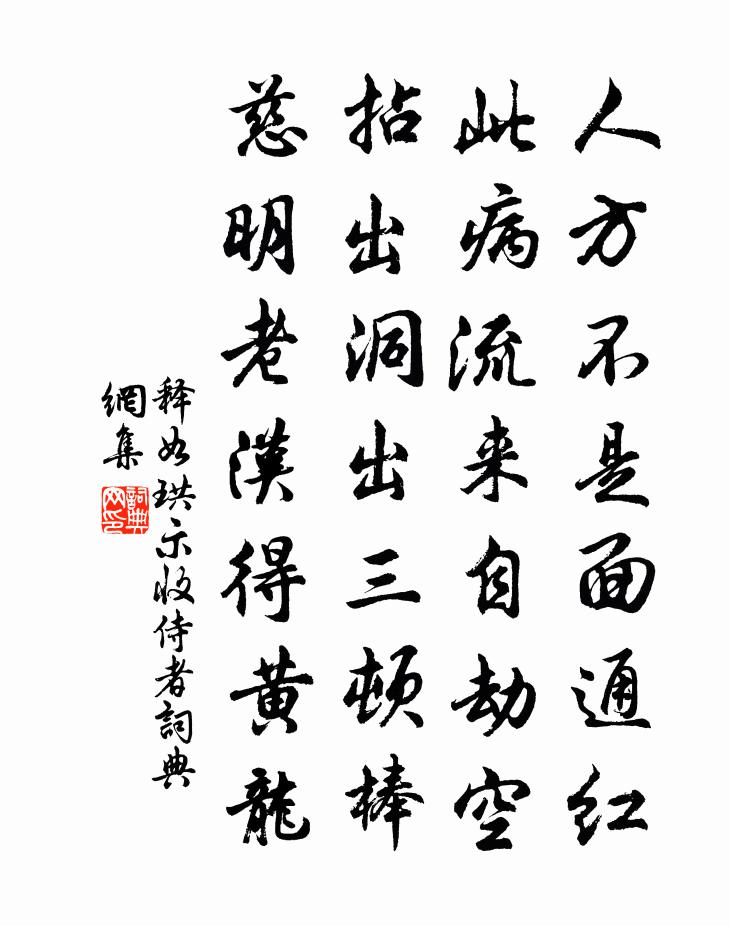 人方不是面通红
此病流来自劫空
拈出洞出三顿棒
慈明老汉得黄龍
释如珙示收侍者詞典
網集
詞典网印